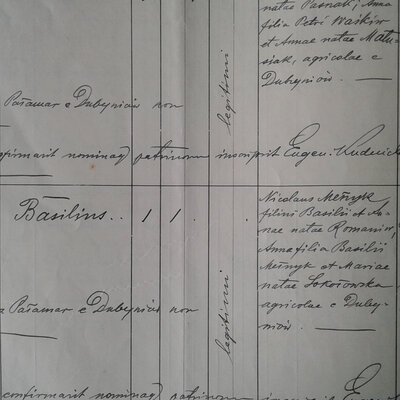 natae Pasnak; Anna
filia Petri Waśków
et Annae natae Matu-
siak, agricolae e
Dubyniów.
Pařamar e Dubyniów non
legitimi
confirmavit nominaq patrinorum inscripsit Eugen.
Basilius.. 1 1.
Nicolaus Meńyk
filius Basilii et An-
nae natae Romaniw,
Anna filia Basilii
Meńyk et Mariae
natae Sokołowska
agricolae e Duby-
niów.
Pařamar e Dubyniów non
legitimi
confirmavit nominaq patrinorum